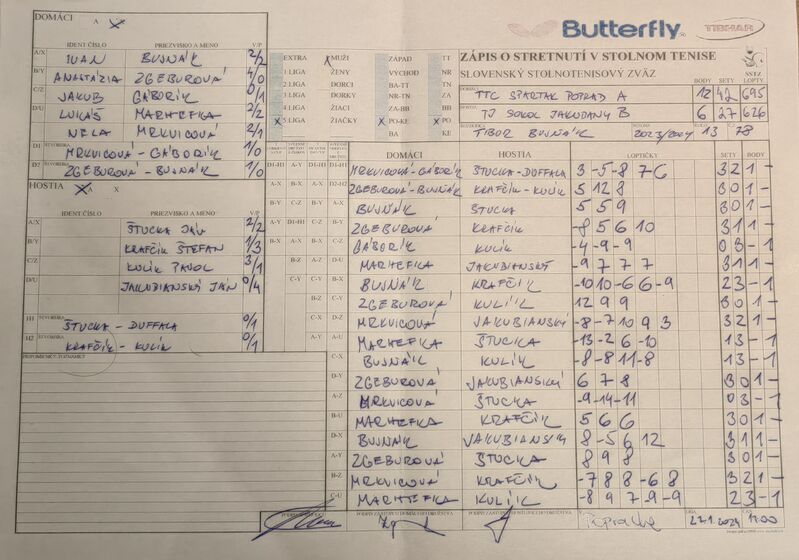 DOMÁCI A X
IDENT ČÍSLO PRIEZVISKO A MENO V/P
A/X IVAN BUJNÁK 2/2
B/Y ANASTÁZIA ZGEBUROVÁ 4/0
C/Z JAKUB GÁBORÍK 0/1
D/U LUKÁŠ MARHEFKA 2/2
NELA MRKVICOVÁ 2/1
D1 MRKVICOVÁ - GÁBORÍK 1/0
D2 ZGEBUROVÁ - BUJNÁK 1/0
HOSTIA X
IDENT ČÍSLO PRIEZVISKO A MENO V/P
A/X ŠTUCKA JÁN 2/2
B/Y KRAFČÍK ŠTEFAN 1/3
C/Z KULÍK PAVOL 3/1
D/U JAKUBIANSKÝ JÁN 0/4
H1 ŠTVORHRA ŠTUCKA - DUFFALA 0/1
H2 ŠTVORHRA KRAFČÍK - KULÍK 0/1
PRIPOMIENKY, POZNÁMKY
Butterfly TIBHAR
EXTRA MUŽI ZÁPAD TT
1 LIGA ŽENY VÝCHOD NR
2 LIGA DORCI BA-TT TN
3 LIGA DORKY NR-TN ZA
4 LIGA ŽIACI ZA-BB BB
X 5 LIGA ŽIAČKY X PO-KE X PO
BA KE
ZÁPIS O STRETNUTÍ V STOLNOM TENISE
SLOVENSKÝ STOLNOTENISOVÝ ZVÄZ SSTZ
BODY SETY LOPTY
TTC SPARTAK POPRAD A 12 42 695
TJ SOKOL JAKUBANY B 6 27 626
TIBOR BUJNÁK 2023/2024 13 78
DOMÁCI HOSTIA LOPTIČKY SETY BODY
MRKVICOVÁ-GÁBORÍK ŠTUCKA-DUFFALA 3 -5 -8 7 6 3 2 1 -
ZGEBUROVÁ-BUJNÁK KRAFČÍK-KULÍK 5 12 8 3 0 1 -
BUJNÁK ŠTUCKA 5 5 9 3 0 1 -
ZGEBUROVÁ KRAFČÍK -8 5 6 10 3 1 1 -
GÁBORÍK KULÍK -4 -9 -9 0 3 - 1
MARHEFKA JAKUBIANSKÝ -9 7 7 7 3 1 1 -
BUJNÁK KRAFČÍK -10 10 -6 6 -9 2 3 - 1
ZGEBUROVÁ KULÍK 12 9 9 3 0 1 -
MRKVICOVÁ JAKUBIANSKÝ -8 -7 10 9 3 3 2 1 -
MARHEFKA ŠTUCKA -13 -2 6 -10 1 3 - 1
BUJNÁK KULÍK -8 -8 11 -8 1 3 - 1
ZGEBUROVÁ JAKUBIANSKÝ 6 7 8 3 0 1 -
MRKVICOVÁ ŠTUCKA -9 -14 -11 0 3 - 1
MARHEFKA KRAFČÍK 5 6 6 3 0 1 -
BUJNÁK JAKUBIANSKÝ 8 -5 6 12 3 1 1 -
ZGEBUROVÁ ŠTUCKA 8 9 8 3 0 1 -
MRKVICOVÁ KRAFČÍK -7 8 8 -6 8 3 2 1 -
MARHEFKA KULÍK -8 9 7 -9 -9 2 3 - 1
DŇA 27.1.2024 ČAS 17.00